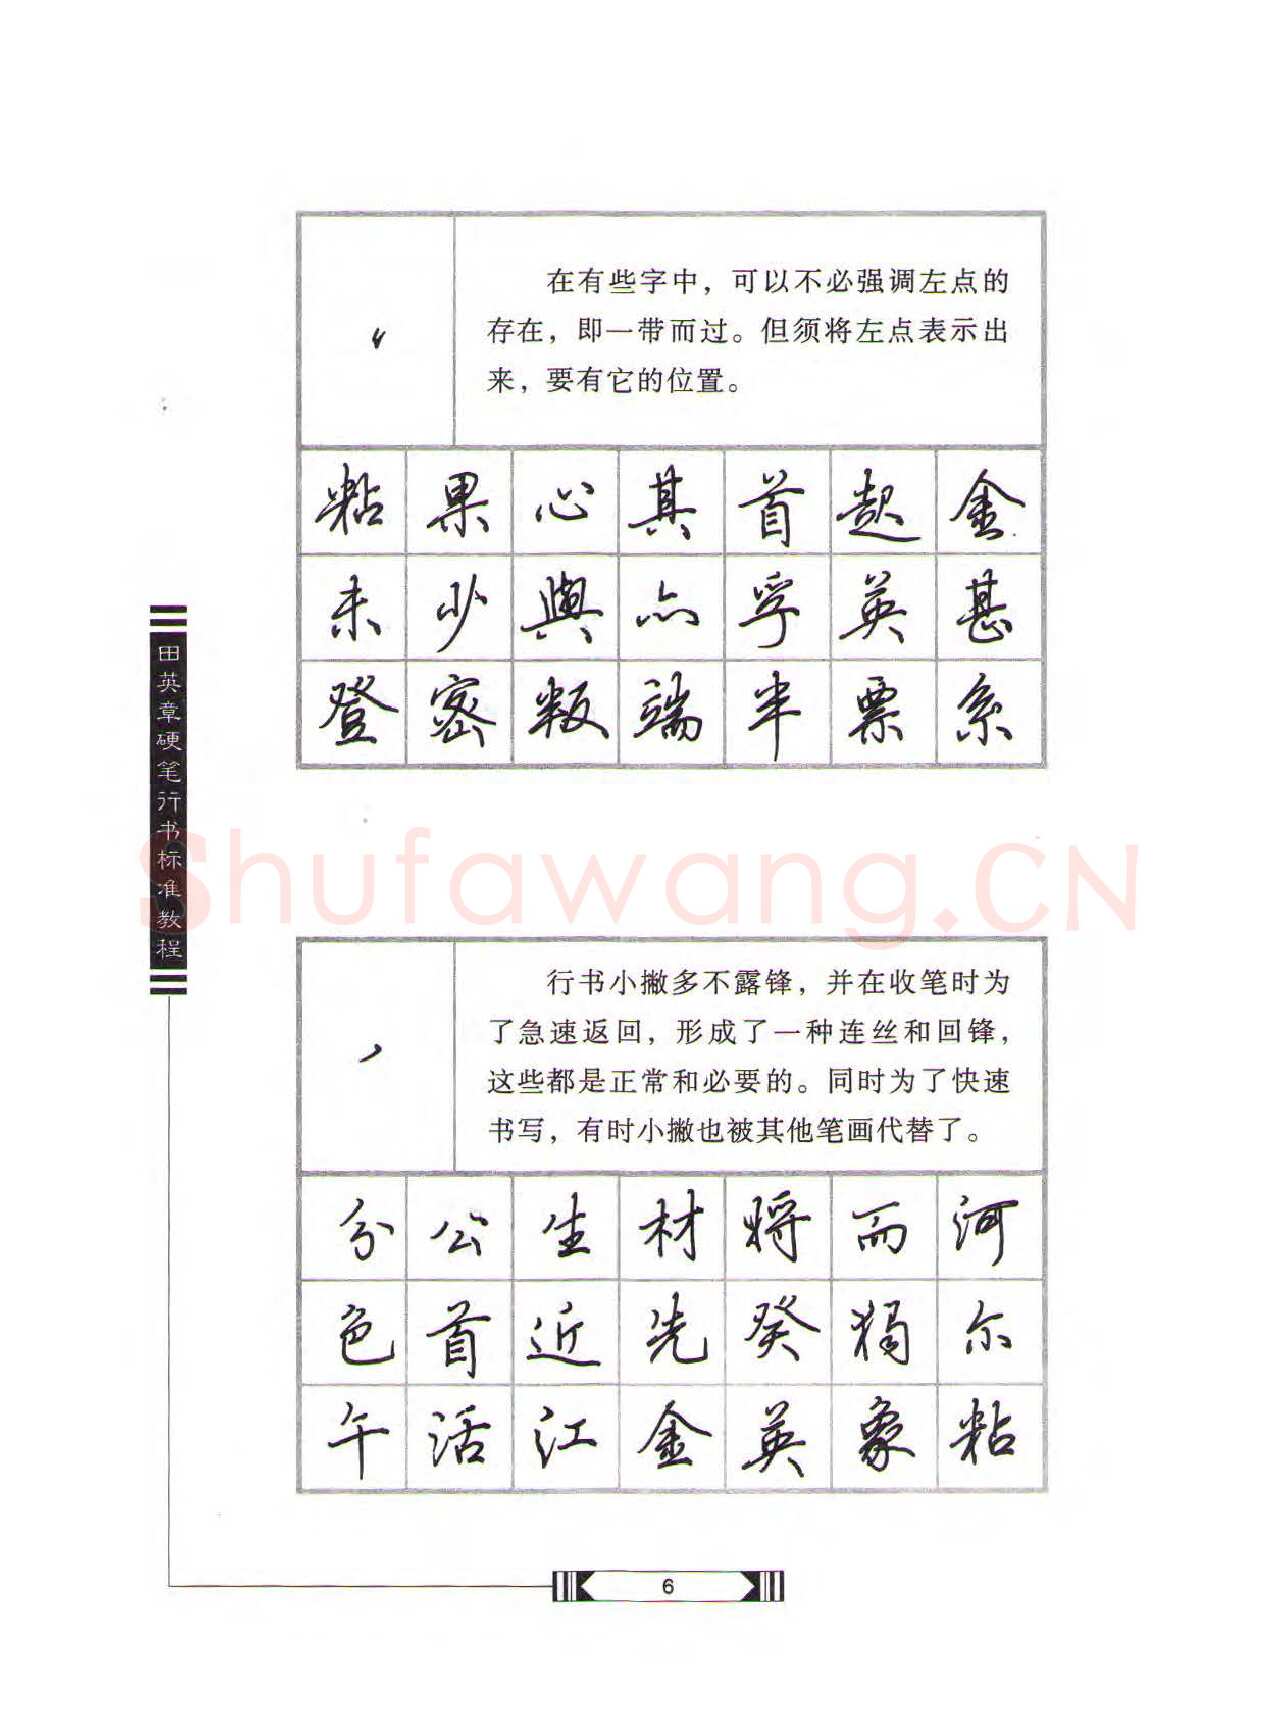 在有些字中，可以不必强调左点的
存在，即一带而过。但须将左点表示出
来，要有它的位置。
粘果心其首起金
未少舆亦孚英甚
登密叛端半票系
田英章硬笔行书标准教程
Shufawang.CN
行书小撇多不露锋，并在收笔时为
了急速返回，形成了一种连丝和回锋，
这些都是正常和必要的。同时为了快速
书写，有时小撇也被其他笔画代替了。
分公生材将而河
色首近先癸 尔
午活江金英象粘
6